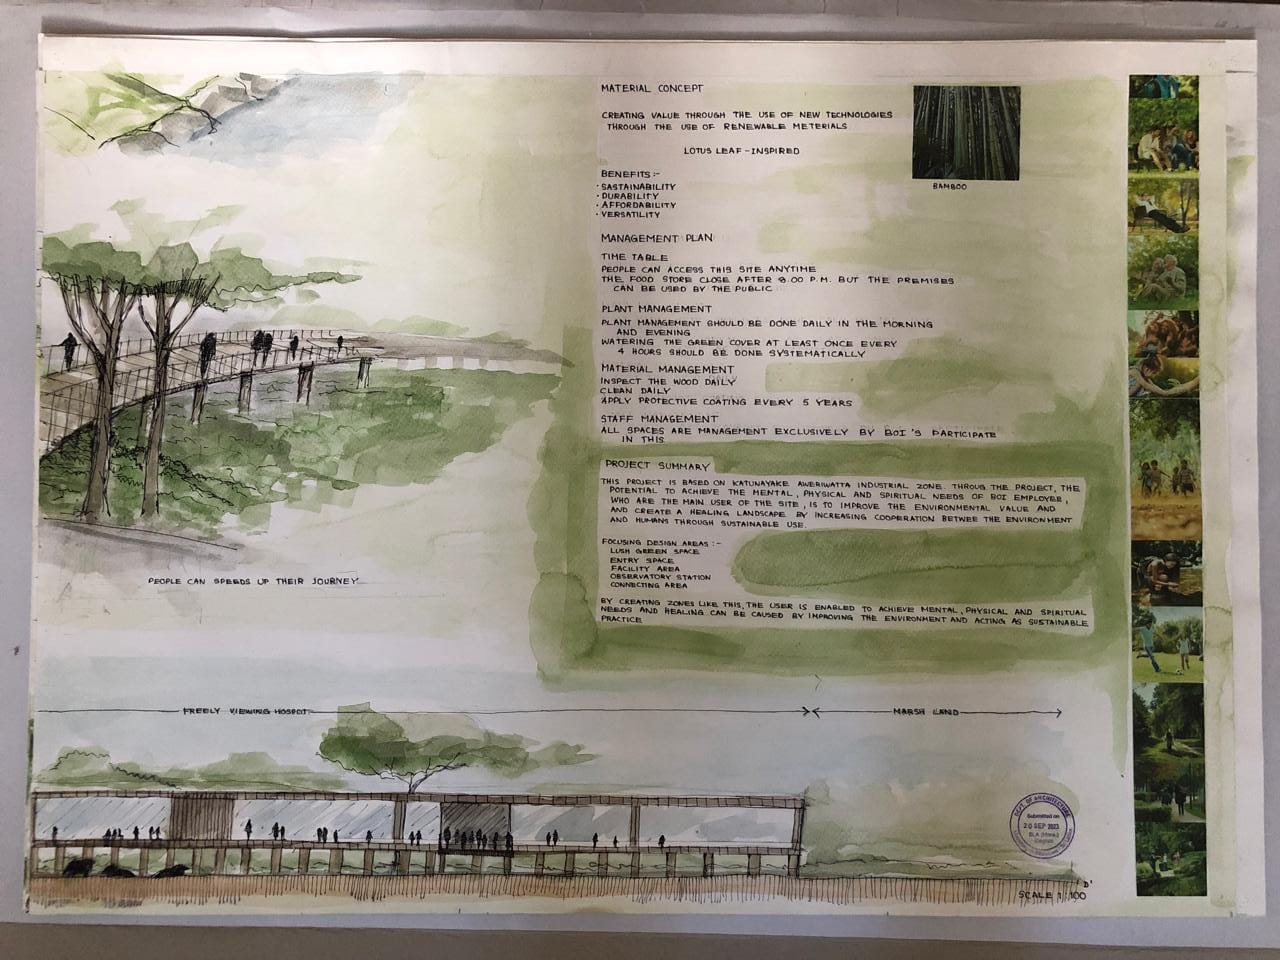 MATERIAL CONCEPT
CREATING VALUE THROUGH THE USE OF NEW TECHNOLOGIES
THROUGH THE USE OF RENEWABLE METERIALS
LOTUS LEAF-INSPIRED
BAMBOO
BENEFITS:-
· SASTAINABILITY
· DURABILITY
· AFFORDABILITY
· VERSATILITY
MANAGEMENT PLAN
TIME TABLE
PEOPLE CAN ACCESS THIS SITE ANYTIME
THE FOOD STORE CLOSE AFTER 8.00 P.M. BUT THE PREMISES
CAN BE USED BY THE PUBLIC
PLANT MANAGEMENT
PLANT MANAGEMENT SHOULD BE DONE DAILY IN THE MORNING
AND EVENING
WATERING THE GREEN COVER AT LEAST ONCE EVERY
4 HOURS SHOULD BE DONE SYSTEMATICALLY
MATERIAL MANAGEMENT
INSPECT THE WOOD DAILY
CLEAN DAILY
APPLY PROTECTIVE COATING EVERY 5 YEARS
STAFF MANAGEMENT
ALL SPACES ARE MANAGEMENT EXCLUSIVELY BY BOI'S PARTICIPATE
IN THIS
PROJECT SUMMARY
THIS PROJECT IS BASED ON KATUNAYAKE AWERIWATTA INDUSTRIAL ZONE. THROUG THE PROJECT, THE
POTENTIAL TO ACHIEVE THE MENTAL, PHYSICAL AND SPIRITUAL NEEDS OF BOI EMPLOYEE,
WHO ARE THE MAIN USER OF THE SITE, IS TO IMPROVE THE ENVIRONMENTAL VALUE AND
AND CREATE A HEALING LANDSCAPE BY INCREASING COOPERATION BETWEE THE ENVIRONMENT
AND HUMANS THROUGH SUSTAINABLE USE.
FOCUSING DESIGN AREAS:-
LUSH GREEN SPACE
ENTRY SPACE
FACILITY AREA
OBSERVATORY STATION
CONNECTING AREA
BY CREATING ZONES LIKE THIS, THE USER IS ENABLED TO ACHIEVE MENTAL, PHYSICAL AND SPIRITUAL
NEEDS AND HEALING CAN BE CAUSED BY IMPROVING THE ENVIRONMENT AND ACTING AS SUSTAINABLE
PRACTICE
PEOPLE CAN SPEEDS UP THEIR JOURNEY
FREELY VIEWING HOSPOT
MARSH LAND
DEPT. OF ARCHITECTURE
Submitted on
20 SEP 2023
BLA (Hons.)
Degree
'D'
SCALE 1:100